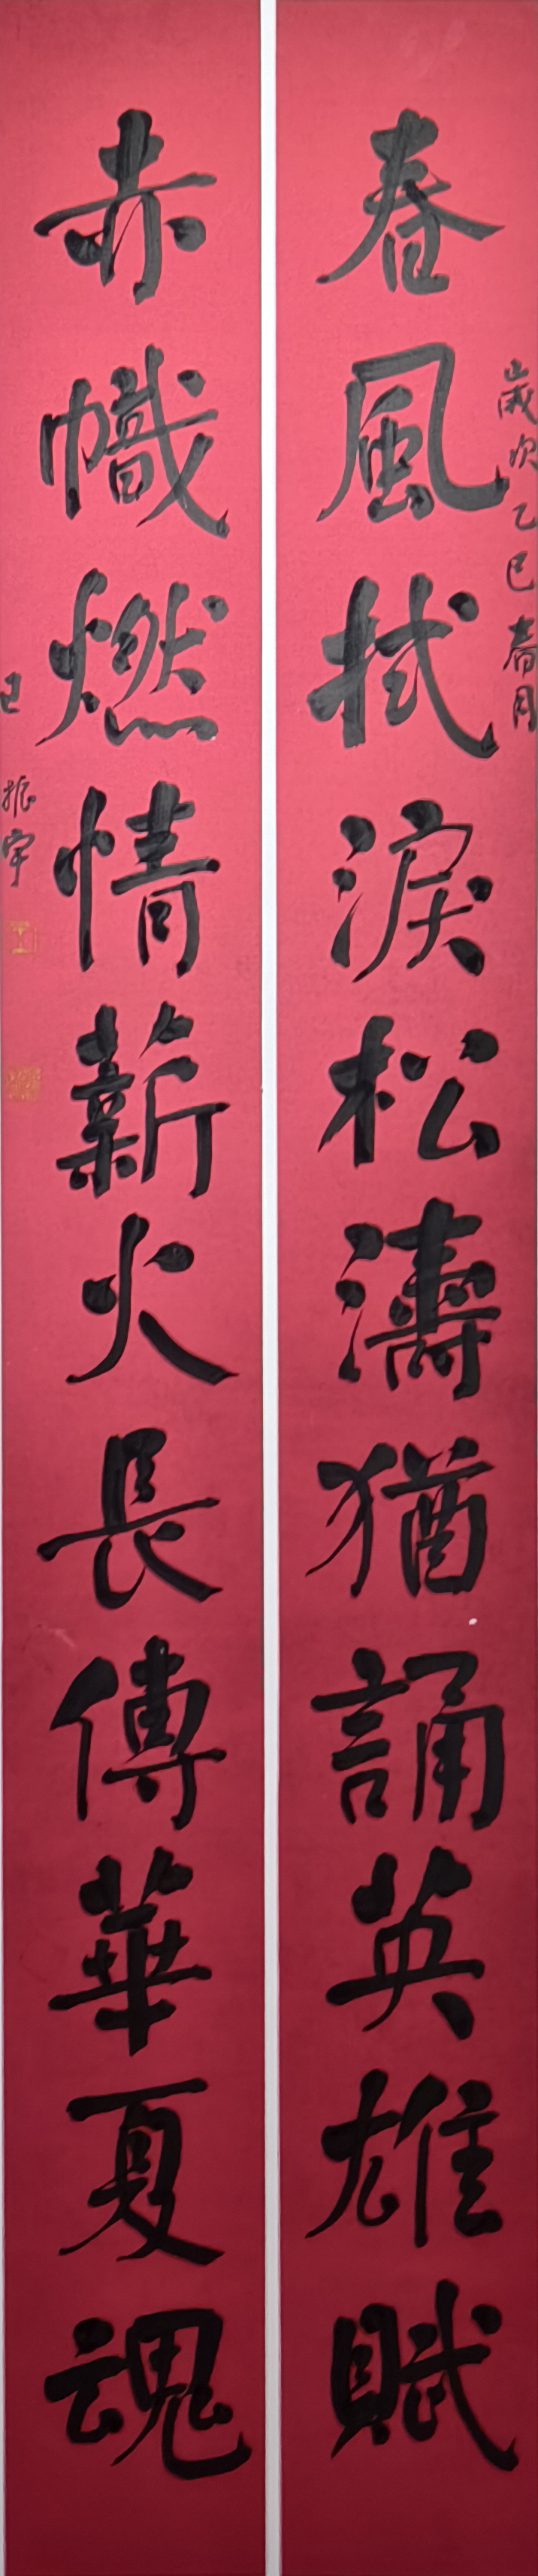 歲次乙巳春月
春風拭淚松濤猶誦英雄賦
赤幟燃情薪火長傳華夏魂
振宇